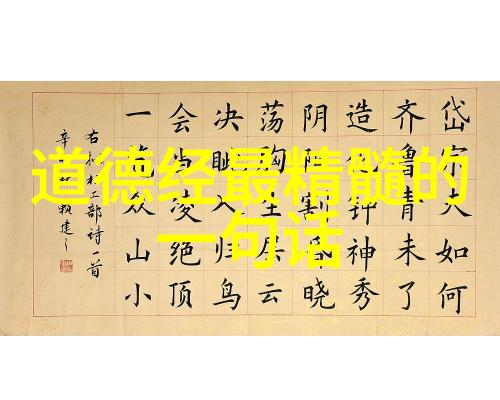 道德经最精髓的
一句话
岱宗夫如何
齐鲁青未了
造化钟神秀
阴阳割昏晓
荡胸生层云
决眦入归鸟
会当凌绝顶
一览众山小
右工部诗一首
辛赖建